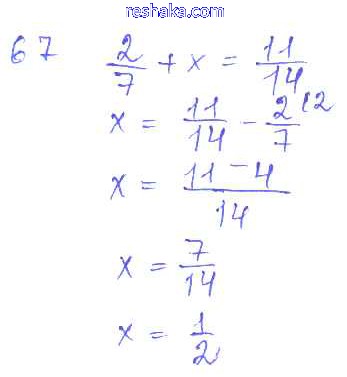 reshaka.com
67 2/7 + x = 11/14
x = 11/14 - 2/7 (2
x = 11 - 4/14
x = 7/14
x = 1/2